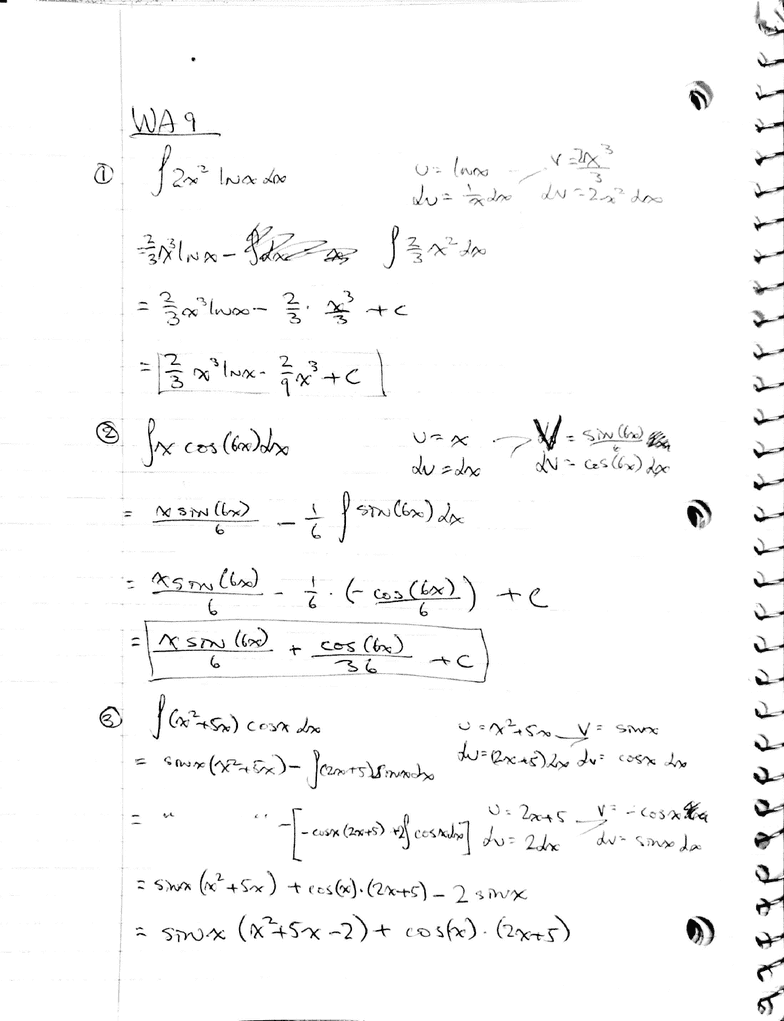 WA 9
① ∫2x² lnx dx   u = lnx   v = 2x³/3
du = 1/x dx   dv = 2x² dx
2/3 x³ lnx − ∫ 2/3 x² dx
= 2/3 x³ lnx − 2/3 · x³/3 + c
= 2/3 x³ lnx − 2/9 x³ + C
② ∫x cos(6x) dx   u = x   V = sin(6x)/6
du = dx   dv = cos(6x) dx
= x sin(6x)/6 − 1/6 ∫ sin(6x) dx
= x sin(6x)/6 − 1/6 · (− cos(6x)/6) + C
= x sin(6x)/6 + cos(6x)/36 + C
③ ∫(x²+5x) cosx dx   u = x²+5x   V = sinx
du = (2x+5) dx   dv = cosx dx
= sinx (x²+5x) − ∫(2x+5) sinx dx
= " " − [−cosx (2x+5) + 2∫ cosx dx]   u = 2x+5   V = −cosx
du = 2dx   dv = sinx dx
= sinx (x²+5x) + cos(x)·(2x+5) − 2 sinx
= sinx (x²+5x−2) + cos(x)·(2x+5)